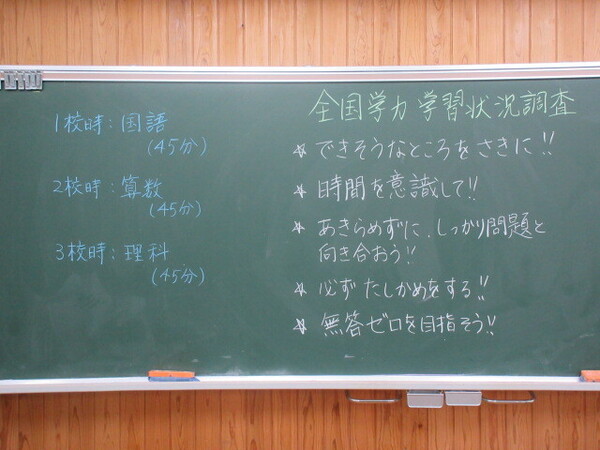 全国学力学習状況調査
1校時:国語
(45分)
2校時:算数
(45分)
3校時:理科
(45分)
☆できそうなところをさきに!!
☆時間を意識して!!
☆あきらめずに、しっかり問題と
向き合おう!!
☆必ずたしかめをする!!
☆無答ゼロを目指そう!!